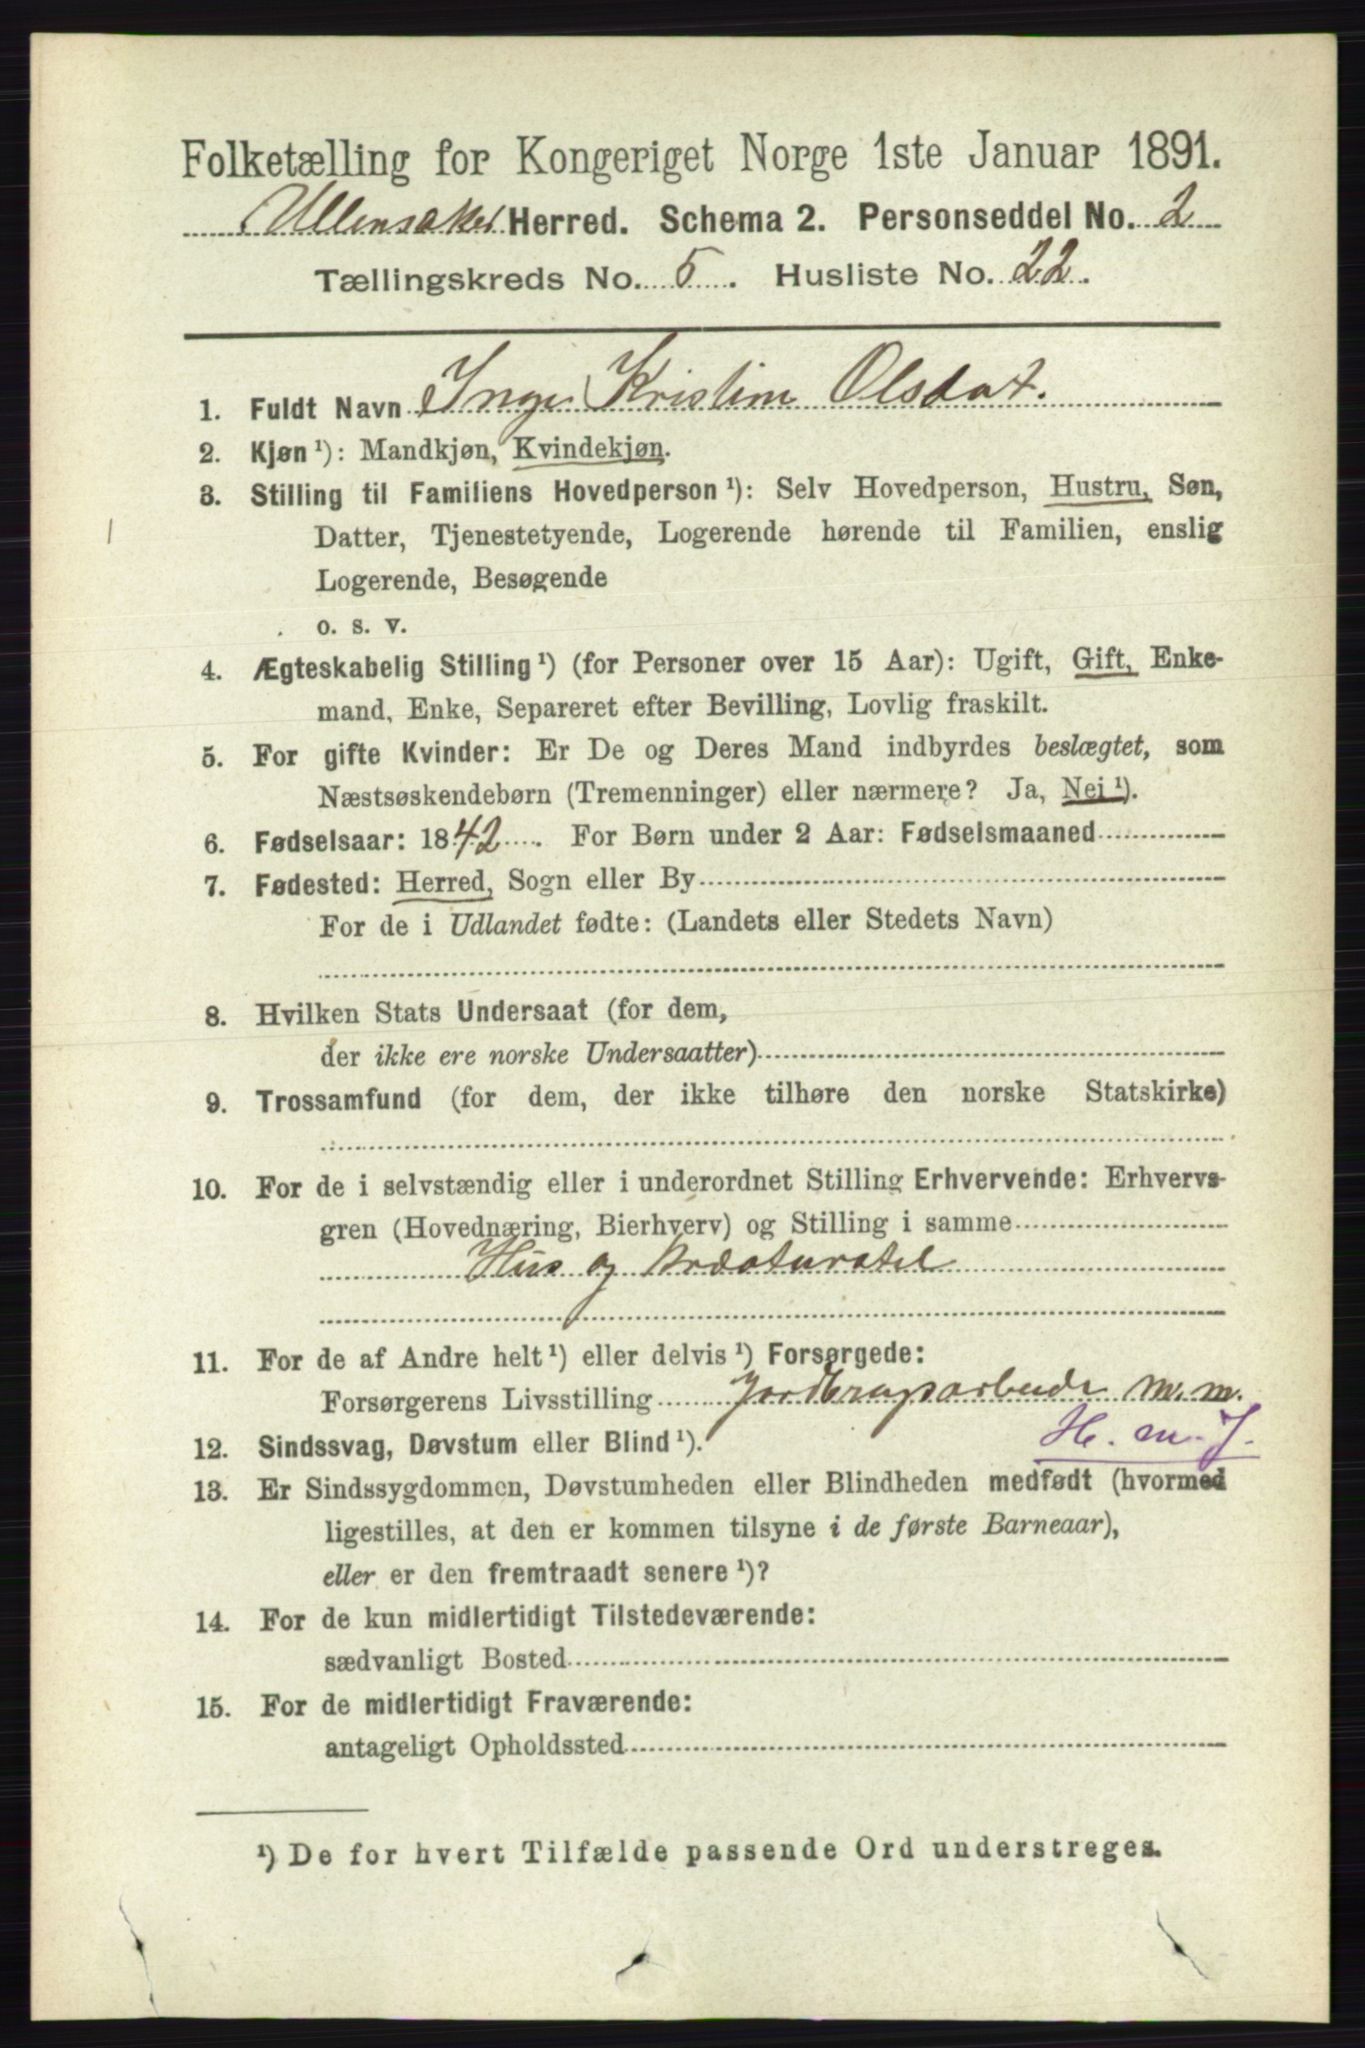 Folketælling for Kongeriget Norge 1ste Januar 1891.
Ullensaker Herred. Schema 2. Personseddel No. 2
Tællingskreds No. 5. Husliste No. 22.
1. Fuldt Navn Inge Kristine Olsdat.
2. Kjøn ¹): Mandkjøn, Kvindekjøn.
3. Stilling til Familiens Hovedperson ¹): Selv Hovedperson, Hustru, Søn,
Datter, Tjenestetyende, Logerende hørende til Familien, enslig
Logerende, Besøgende
o. s. v.
4. Ægteskabelig Stilling ¹) (for Personer over 15 Aar): Ugift, Gift, Enke-
mand, Enke, Separeret efter Bevilling, Lovlig fraskilt.
5. For gifte Kvinder: Er De og Deres Mand indbyrdes beslægtet, som
Næstsøskendebørn (Tremenninger) eller nærmere? Ja, Nei ¹).
6. Fødselsaar: 1842. For Børn under 2 Aar: Fødselsmaaned
7. Fødested: Herred, Sogn eller By
For de i Udlandet fødte: (Landets eller Stedets Navn)
8. Hvilken Stats Undersaat (for dem,
der ikke ere norske Undersaatter)
9. Trossamfund (for dem, der ikke tilhøre den norske Statskirke)
10. For de i selvstændig eller i underordnet Stilling Erhvervende: Erhvervs-
gren (Hovednæring, Bierhverv) og Stilling i samme
Hus og Kreaturstel
11. For de af Andre helt ¹) eller delvis ¹) Forsørgede:
Forsørgerens Livsstilling Jordbrugsarbeide m.m.
H. m. J.
12. Sindssvag, Døvstum eller Blind ¹).
13. Er Sindssygdommen, Døvstumheden eller Blindheden medfødt (hvormed
ligestilles, at den er kommen tilsyne i de første Barneaar),
eller er den fremtraadt senere ¹)?
14. For de kun midlertidigt Tilstedeværende:
sædvanligt Bosted
15. For de midlertidigt Fraværende:
antageligt Opholdssted
¹) De for hvert Tilfælde passende Ord understreges.